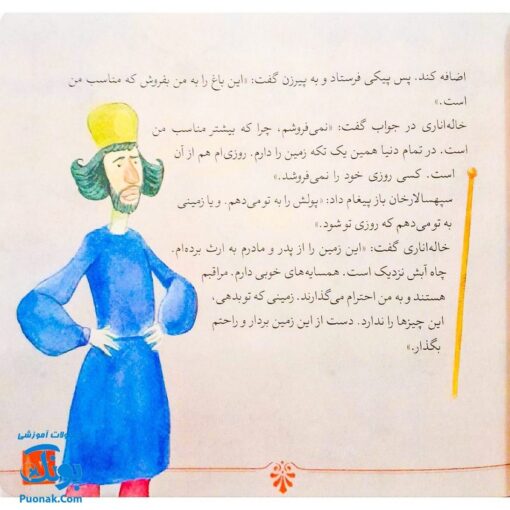 اضافه کند. پس پیکی فرستاد و به پیرزن گفت: «این باغ را به من بفروش که مناسب من
است.»
خاله‌اناری در جواب گفت: «نمی‌فروشم، چرا که بیشتر مناسب من
است. در تمام دنیا همین یک تکه زمین را دارم. روزی‌ام هم از آن
است. کسی روزی خود را نمی‌فروشد.»
سپهسالارخان باز پیغام داد: «پولش را به تو می‌دهم. و یا زمینی
به تو می‌دهم که روزی تو شود.»
خاله‌اناری گفت: «این زمین را از پدر و مادرم به ارث برده‌ام.
چاه آبش نزدیک است. همسایه‌های خوبی دارم. مراقبم
هستند و به من احترام می‌گذارند. زمینی که تو بدهی،
این چیزها را ندارد. دست از این زمین بردار و راحتم
بگذار.»
ولات آموزشی
پونک
Puonak.Com